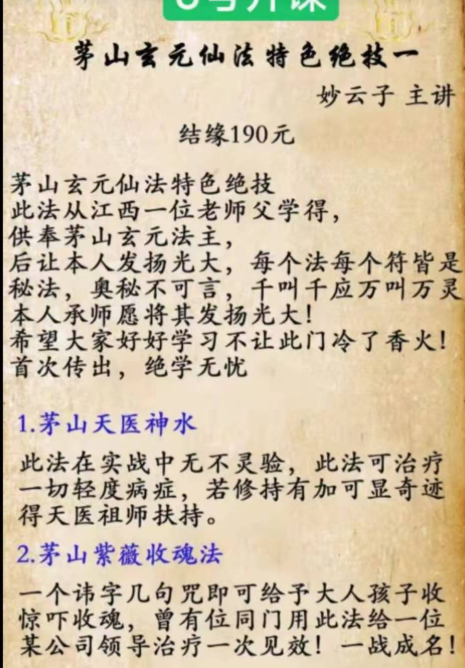 号开课
茅山玄元仙法特色绝技一
妙云子 主讲
结缘190元
茅山玄元仙法特色绝技
此法从江西一位老师父学得，
供奉茅山玄元法主，
后让本人发扬光大，每个法每个符皆是
秘法，奥秘不可言，千叫千应万叫万灵
本人承师愿将其发扬光大！
希望大家好好学习不让此门冷了香火！
首次传出，绝学无忧
1.茅山天医神水
此法在实战中无不灵验，此法可治疗
一切轻度病症，若修持有加可显奇迹
得天医祖师扶持。
2.茅山紫薇收魂法
一个讳字几句咒即可给予大人孩子收
惊吓收魂，曾有位同门用此法给一位
某公司领导治疗一次见效！一战成名！